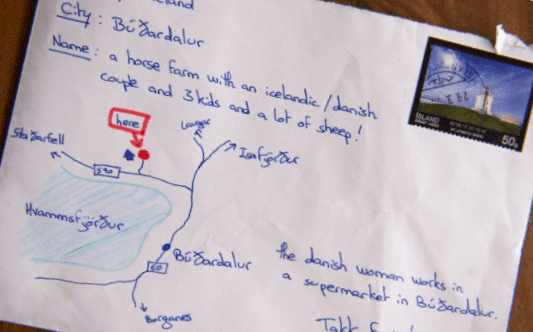 City : Búðardalur
Name : a horse farm with an icelandic/danish
couple and 3 kids and a lot of sheep!
here
Laugar
Staðarfell
Isafjörður
590
Hvammsfjörður
Búðardalur
60
the danish woman works in
a supermarket in Búðardalur.
Borganes
Takk
ÍSLAND
50g